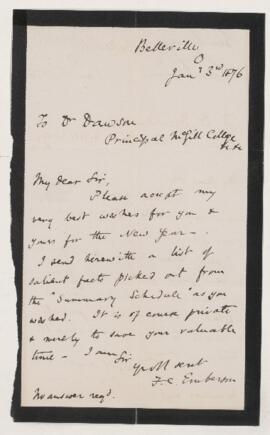 Belleville
Jany 3rd 1876
To Dr Dawson
Principal McGill College
&c &c
My dear Sir,
Please accept my
very best wishes for you &
yours for the New Year -.
I send herewith a list of
salient facts picked out from
the "Summary Schedule" as you
wished. It is of course private
& merely to save your valuable
time - I am Sir
yr obt servt
F. C. Emberson
No answer reqd.